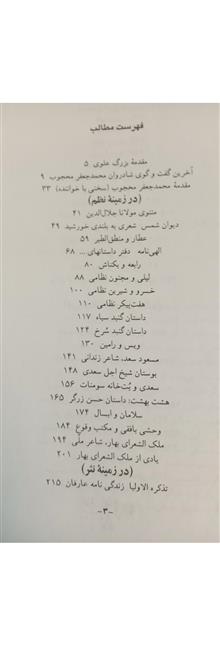 فهرست مطالب
مقدمه بزرگ علوی ۵
آخرین گفت و گوی شادروان محمدجعفر محجوب ۹
مقدمه محمدجعفر محجوب (سخنی با خواننده) ۳۳
(در زمینهٔ نظم)
مثنوی مولانا جلال‌الدین ۴۱
دیوان شمس شعری به بلندی خورشید ۴۹
عطار و منطق‌الطیر ۵۹
الهی‌نامه دفتر داستانهای ... ۶۸
رابعه و بکتاش ۸۰
لیلی و مجنون نظامی ۸۸
خسرو و شیرین نظامی ۱۰۰
هفت‌پیکر نظامی ۱۱۰
داستان گنبد سیاه ۱۱۷
داستان گنبد سُرخ ۱۲۴
ویس و رامین ۱۳۰
مسعود سعد، شاعر زندانی ۱۴۱
بوستان شیخ اجل سعدی ۱۴۸
سعدی و بُت‌خانه سومنات ۱۵۶
هشت بهشت: داستان حسن زرگر ۱۶۵
سلامان و ابسال ۱۷۴
وحشی بافقی و مکتب وقوع ۱۸۴
ملک الشعرای بهار، شاعر ملّی ۱۹۴
یادی از ملک الشعرای بهار ۲۰۱
(در زمینهٔ نثر)
تذکره الاولیا زندگی نامه عارفان ۲۱۵
-۳-